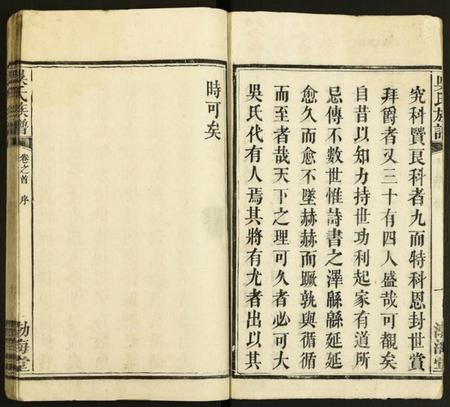 吳氏族譜
究科賢良科者九而特科恩封世賞
拜爵者又三十有四人盛哉可觀矣
自昔以知力持世功利起家有道所
忌傳不數世惟詩書之澤緜緜延延
愈久而愈不墜赫赫而蹶孰與循循
而至者哉天下之理可久者必可大
吳氏代有人焉其將有尤者出以其
時可矣
吳氏族譜
卷之首
序
渤海堂